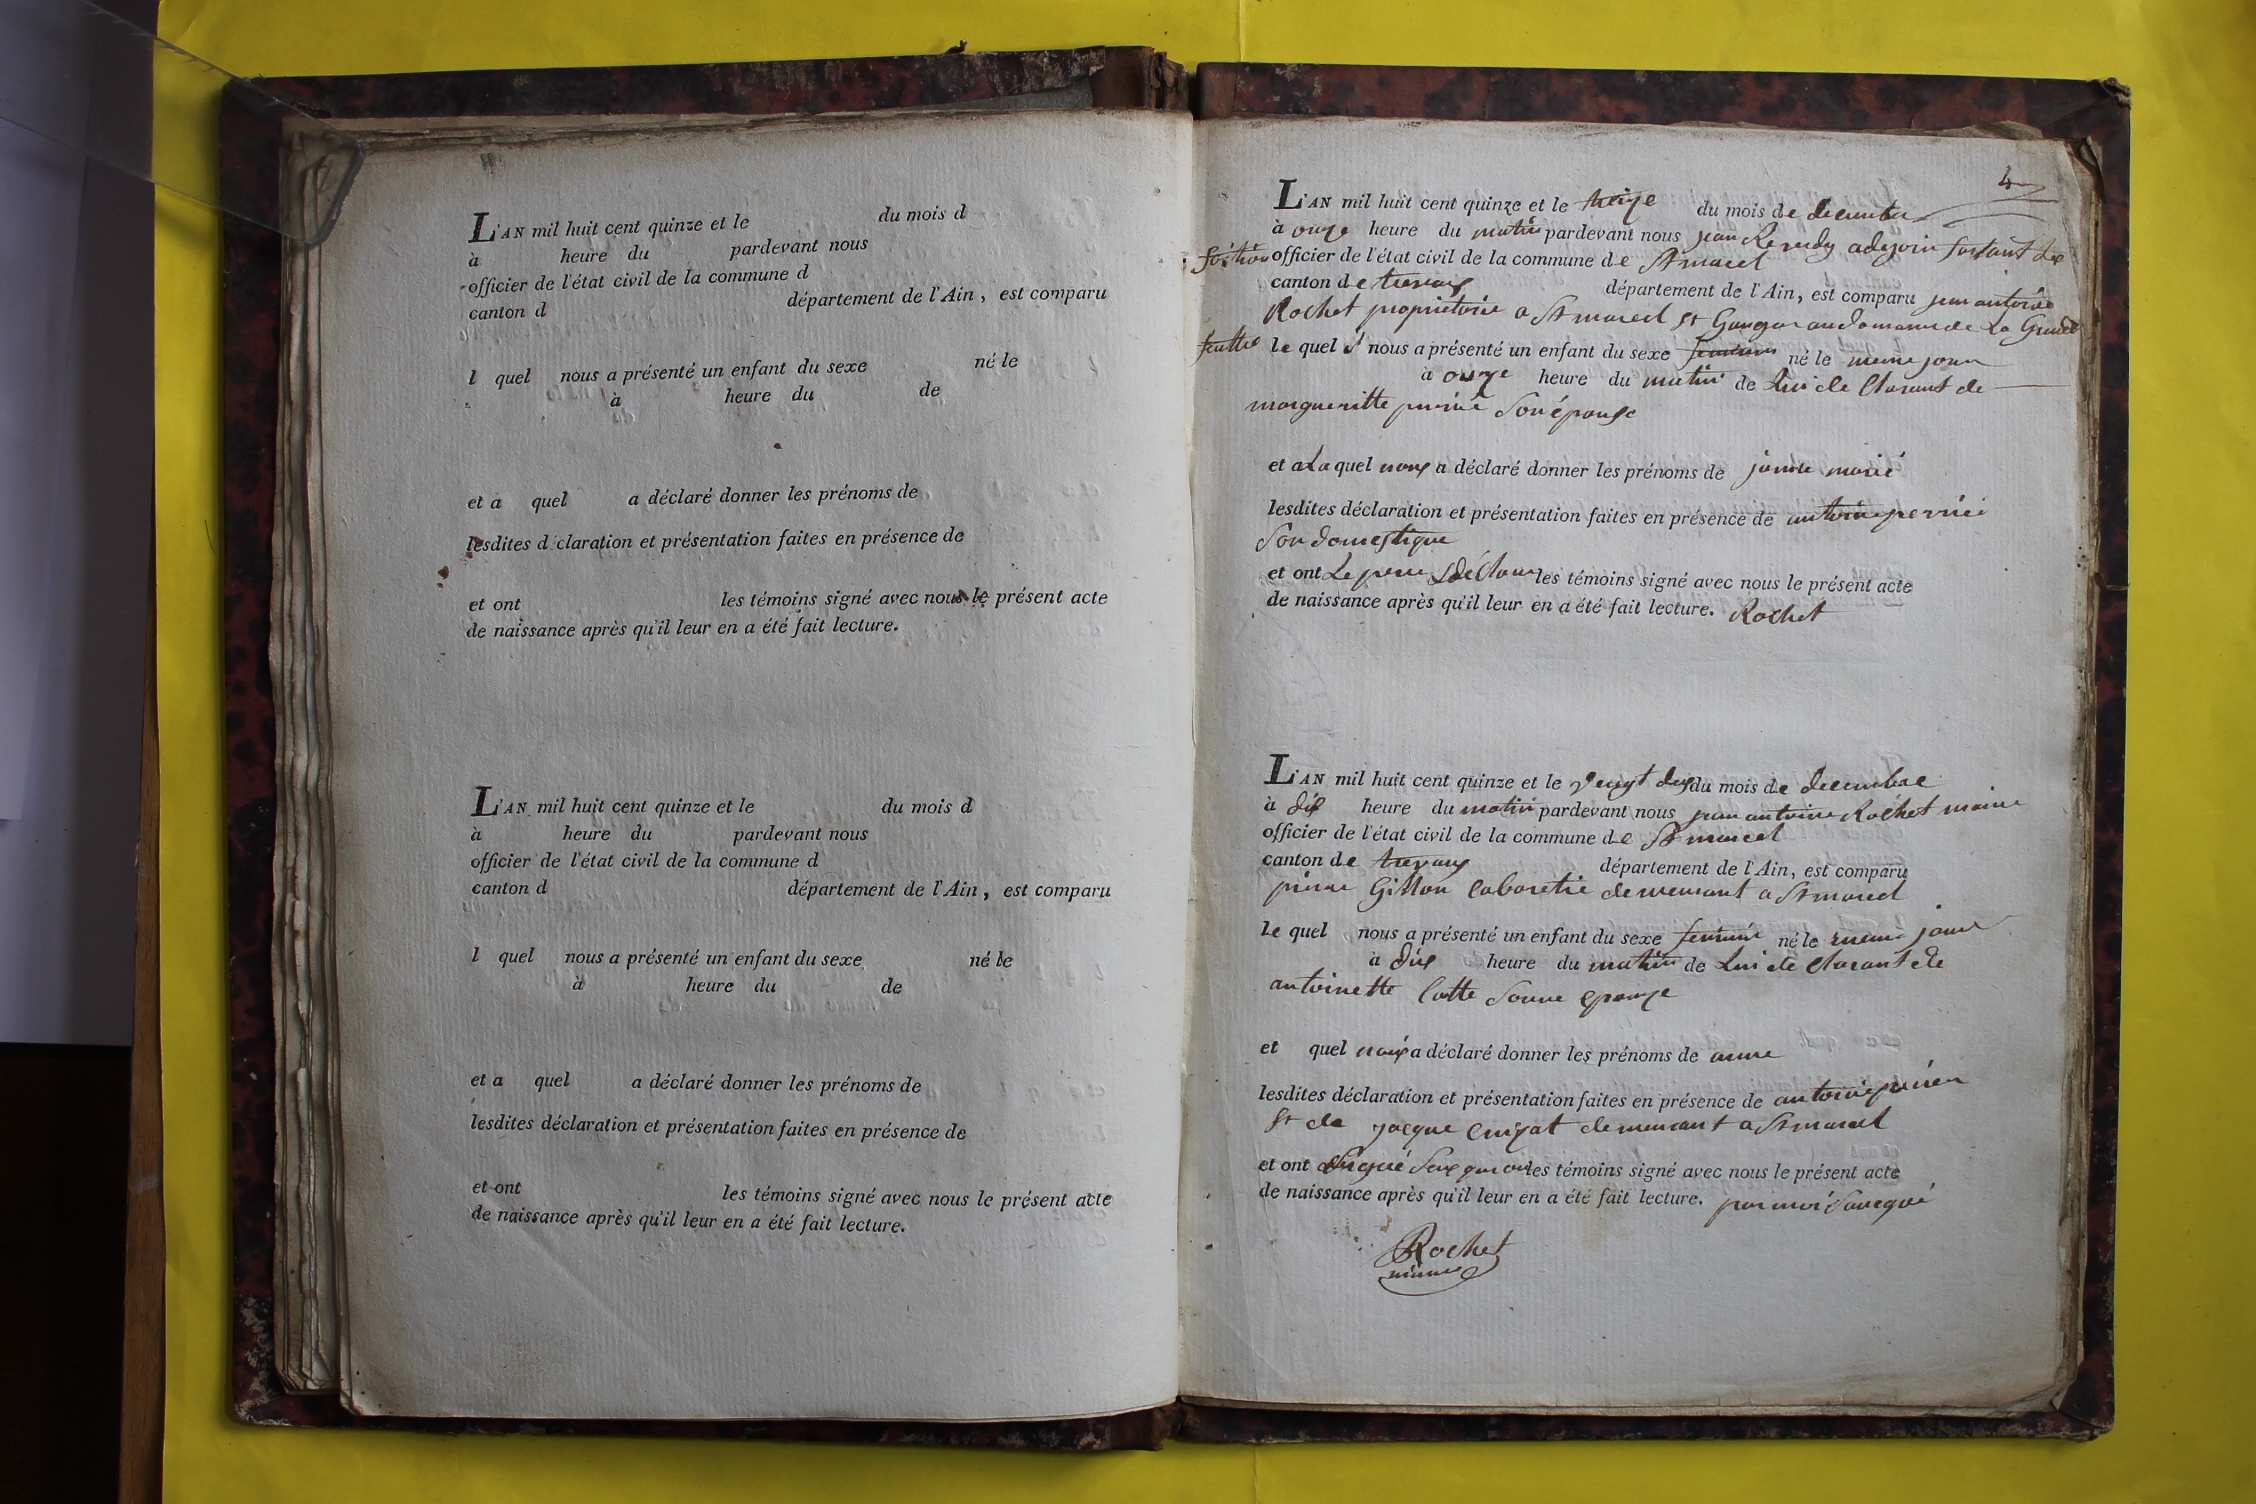 L'AN mil huit cent quinze et le du mois d
à heure du pardevant nous
officier de l'état civil de la commune d
canton d département de l'Ain, est comparu
l quel nous a présenté un enfant du sexe né le
à heure du de
et a quel a déclaré donner les prénoms de
lesdites d claration et présentation faites en présence de
et ont les témoins signé avec nous le présent acte
de naissance après qu'il leur en a été fait lecture.
L'AN mil huit cent quinze et le du mois d
à heure du pardevant nous
officier de l'état civil de la commune d
canton d département de l'Ain, est comparu
l quel nous a présenté un enfant du sexe né le
à heure du de
et a quel a déclaré donner les prénoms de
lesdites déclaration et présentation faites en présence de
et ont les témoins signé avec nous le présent acte
de naissance après qu'il leur en a été fait lecture.
4
L'AN mil huit cent quinze et le treize du mois de decembre
à onze heure du matin pardevant nous jean adejoin
officier de l'état civil de la commune de St marcel
canton de trevoux département de l'Ain, est comparu jean antoine
Rochet proprietaire a St marcel et de La Grande
le quel nous a présenté un enfant du sexe feminin né le meme jour
à onze heure du matin de Lui de Clarant de
margueritte son épouse
et a La quel nous a déclaré donner les prénoms de janne marie
lesdites déclaration et présentation faites en présence de antoine perrier
son domestique
et ont Le pere les témoins signé avec nous le présent acte
de naissance après qu'il leur en a été fait lecture. Rochet
L'AN mil huit cent quinze et le vengt deux du mois de decembre
à dix heure du matin pardevant nous jean antoine Rochet maire
officier de l'état civil de la commune de St marcel
canton de trevoux département de l'Ain, est comparu
pierre Gillon cabaretie demeurant a St marcel
le quel nous a présenté un enfant du sexe feminin né le meme jour
à dix heure du matin de Lui de Clarant de
antoinette Cotte sonne epouze
et quel nous a déclaré donner les prénoms de anne
lesdites déclaration et présentation faites en présence de antoine
et de jacque demeurant a St marcel
et ont les témoins signé avec nous le présent acte
de naissance après qu'il leur en a été fait lecture. par moi
Rochet
maire